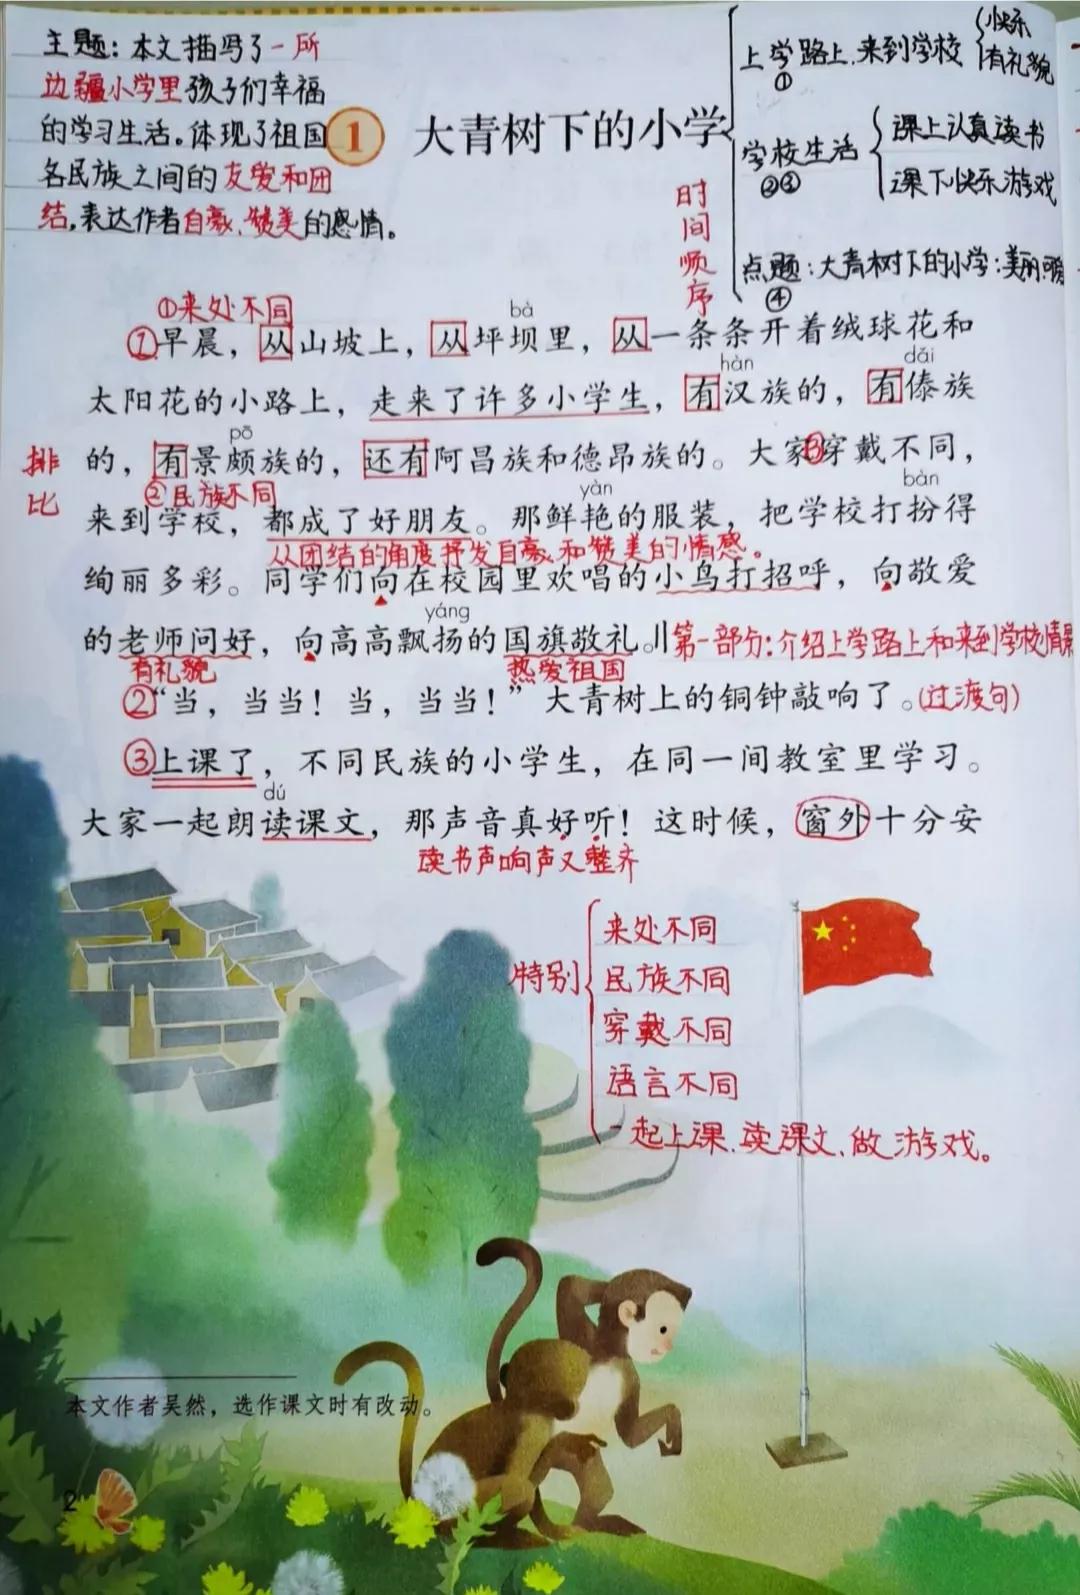 主题：本文描写了一所
边疆小学里孩子们幸福
的学习生活。体现了祖国
各民族之间的友爱和团
结，表达作者自豪、赞美的感情。
1 大青树下的小学
时间顺序
上学路上、来到学校
①
快乐
有礼貌
学校生活
②③
课上认真读书
课下快乐游戏
点题：大青树下的小学：美丽、可爱
④
①来处不同
bà
①早晨，从山坡上，从坪坝里，从一条条开着绒球花和
hàn dǎi
太阳花的小路上，走来了许多小学生，有汉族的，有傣族
pō
排比
的，有景颇族的，还有阿昌族和德昂族的。大家③穿戴不同，
②民族不同 yàn bàn
来到学校，都成了好朋友。那鲜艳的服装，把学校打扮得
从团结的角度抒发自豪和赞美的情感。
绚丽多彩。同学们向在校园里欢唱的小鸟打招呼，向敬爱
yáng
的老师问好，向高高飘扬的国旗敬礼。‖第一部分：介绍上学路上和来到学校情景
有礼貌 热爱祖国
②“当，当当！当，当当！”大青树上的铜钟敲响了。（过渡句）
③上课了，不同民族的小学生，在同一间教室里学习。
dú
大家一起朗读课文，那声音真好听！这时候，窗外十分安
读书声响声又整齐
特别
来处不同
民族不同
穿戴不同
语言不同
一起上课、读课文、做游戏。
本文作者吴然，选作课文时有改动。
2